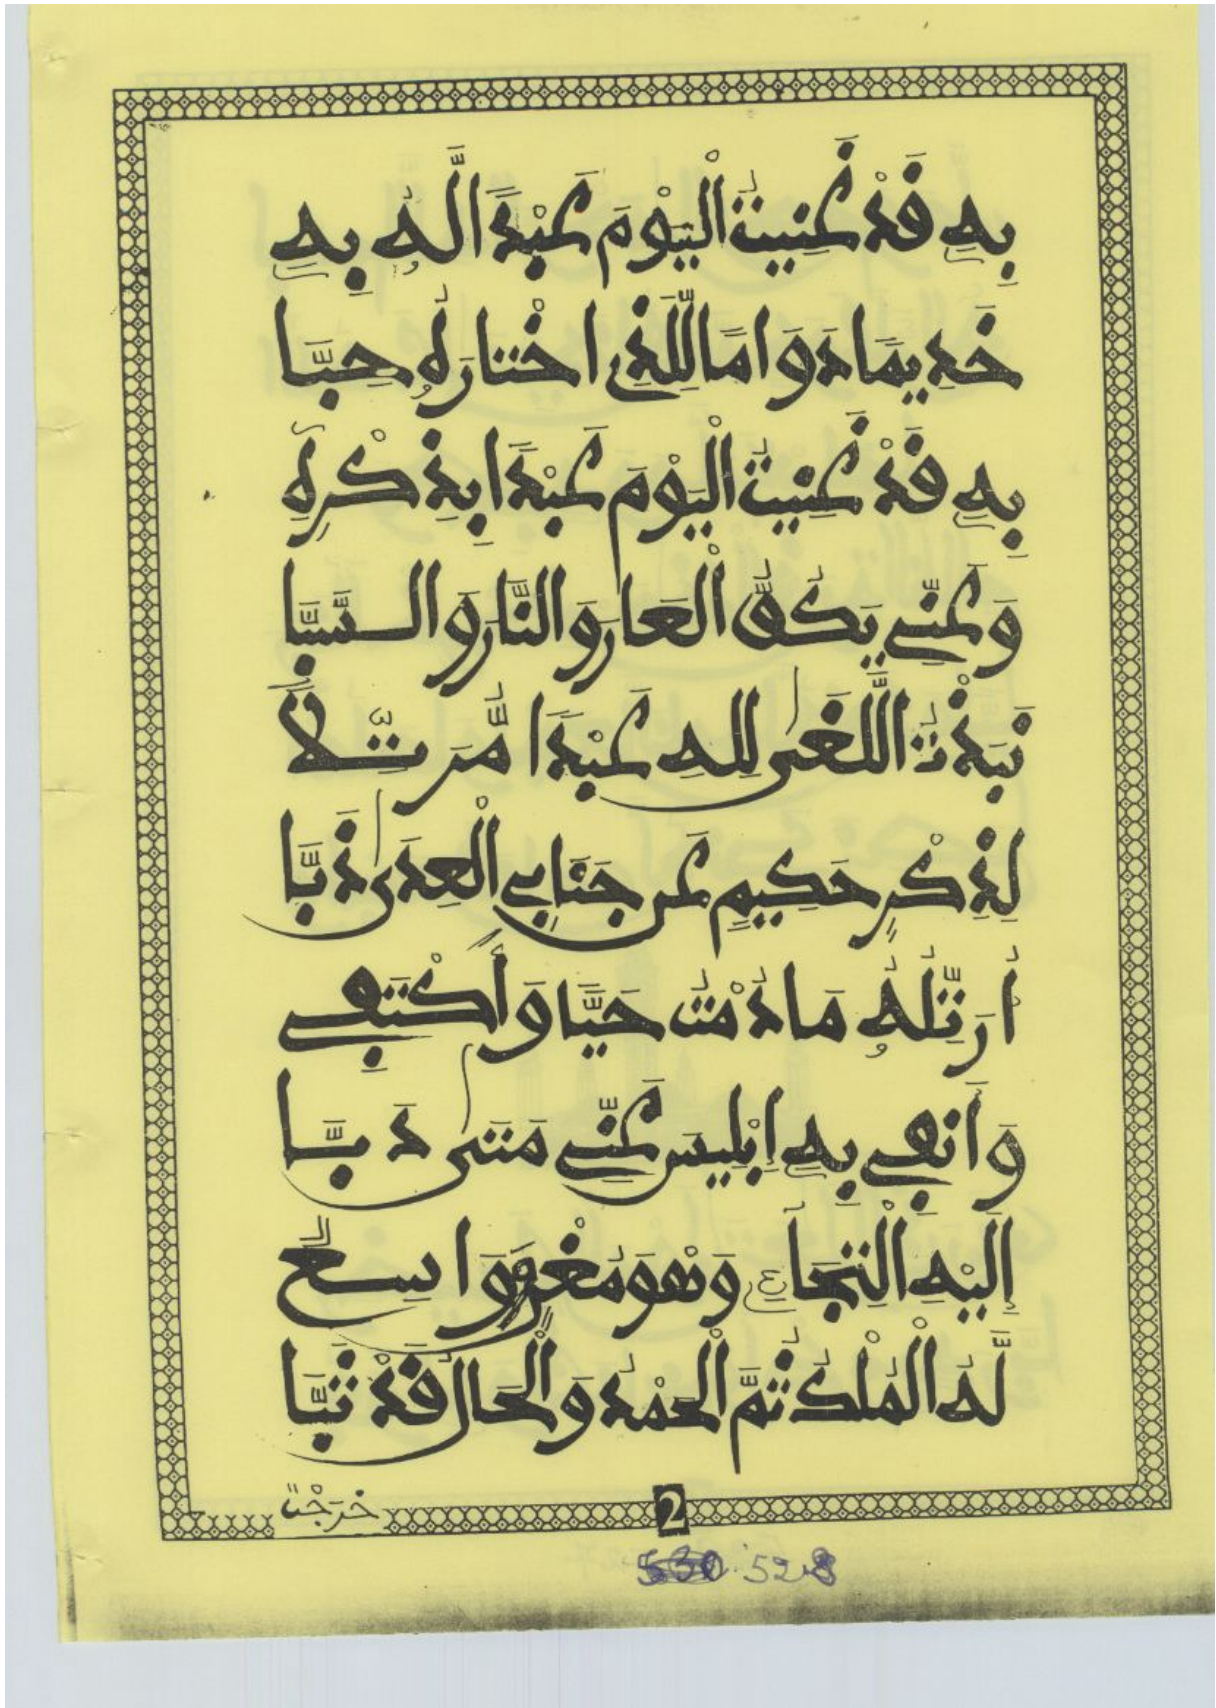 بِهِ قَدْ غَنِيتُ الْيَوْمَ عَبْداً لَّهُ بِهِ
خَدِيماً دَوَاماً لِلَّذِي اخْتَارَهُ حِبَّا
بِهِ قَدْ غَنِيتُ الْيَوْمَ عَبْداً بِذِكْرِهِ
وَعَنِّي يَكُفُّ الْعَارَ وَالنَّارَ وَالسَّبَّا
نَبَذْتُ اللَّغَى لِلهِ عَبْداً مُّرَتِّلاً
لِذِكْرٍ حَكِيمٍ عَن جَنَابِي الْعِدَى ذَبَّا
أُرَتِّلُهُ مَا دُمْتُ حَيّاً وَأَكْتَفِي
وَأَنْفِي بِهِ إِبْلِيسَ عَنِّي مَتَى دَبَّا
إِلَيْهِ الْتِجَاءِ وَهْوَ مُغْنٍ وَوَاسِعٌ
لَهُ الْمُلْكُ ثُمَّ الْحَمْدُ وَالْحَالَ قَدْ ثَبَّا
خَرَجْتُ
2
528